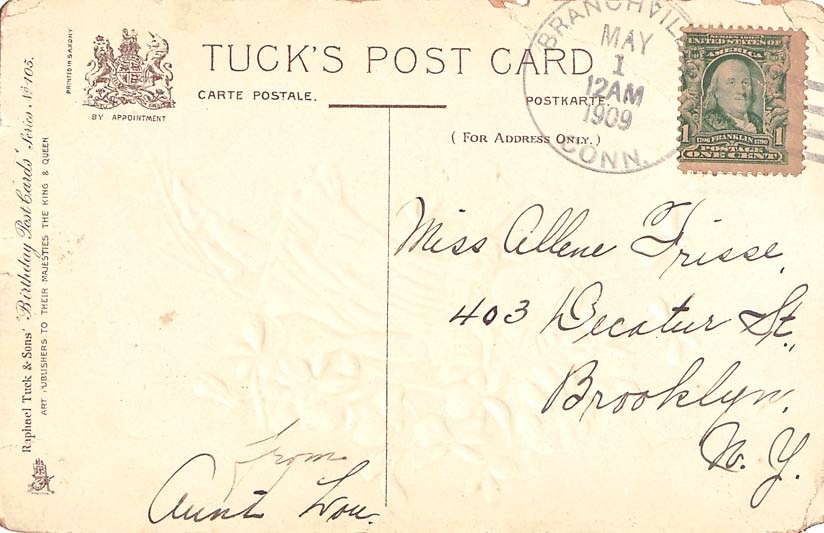 PRINTED IN SAXONY
BY APPOINTMENT
TUCK'S POST CARD
CARTE POSTALE.
POSTKARTE.
(FOR ADDRESS ONLY.)
BRANCHVIL
MAY
1
12AM
1909
CONN.
UNITED STATES OF
AMERICA
1 FRANKLIN 1
POSTAGE
ONE CENT
Raphael Tuck & Sons' "Birthday Post Cards" Series No. 105.
ART PUBLISHERS TO THEIR MAJESTIES THE KING & QUEEN
Miss Allene Frisse,
403 Decatur St.,
Brooklyn,
N. Y.
from
Aunt Lou.